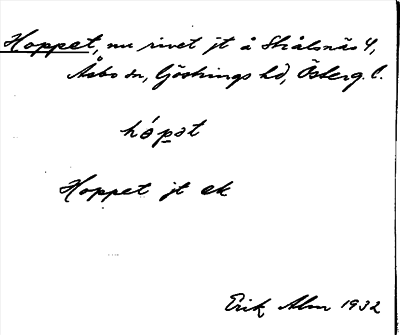 Hoppet, nu rivet jt å Strålsnäs 4,
Åsbo sn, Göstrings hd, Österg. l.
hópat
Hoppet jt ek
Erik Alm 1932